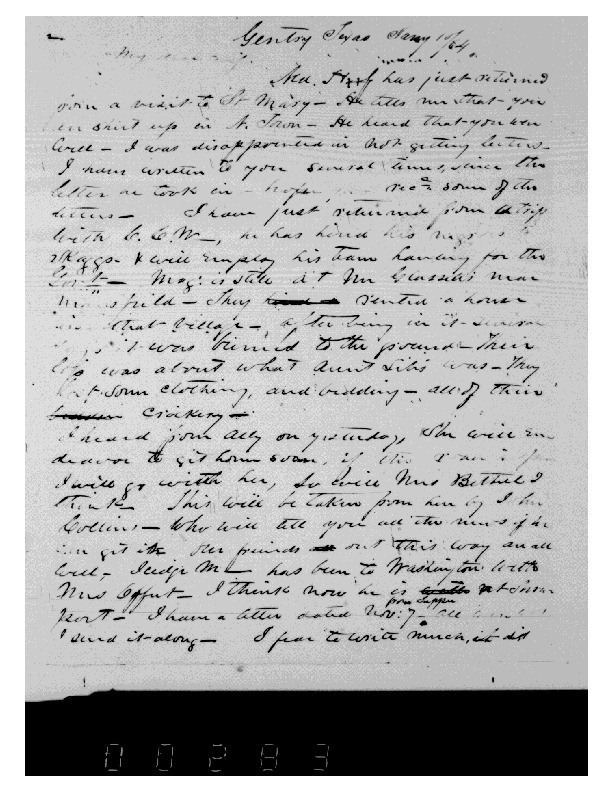 Gentry Texas Jany 10/64
My dear
has just returned
from a visit to St Mary - He tells me that you
are shut up in N. Town - He heard that you were
well - I was disappointed in not getting letters -
I have written to you several times, since the
letter we took in - hope you rec^d some of the
letters - I have just returned from a trip
with C. C. W -, he has hired his negroes to
& will employ his team hauling for the
Govt - is still at Mr near
Mansfield - They rented a house
in that village -, after being in it several
it was burned to the ground - Their
loss was about what Aunt was - They
lost some clothing, and bedding - all of their
Crockery -
I heard from Ally on yesterday, She will en
deavor to git home soon, if
I will go with her, So will Mrs Bethel I
think - This will be taken from here by
Collins - who will tell you all the news if he
can git in our friends out this way are all
well - Judge M - has been to Washington with
Mrs Offut - I think now he is at
port - I have a letter dated Nov: 7 - from
I send it along - I fear to write much, it is
00283